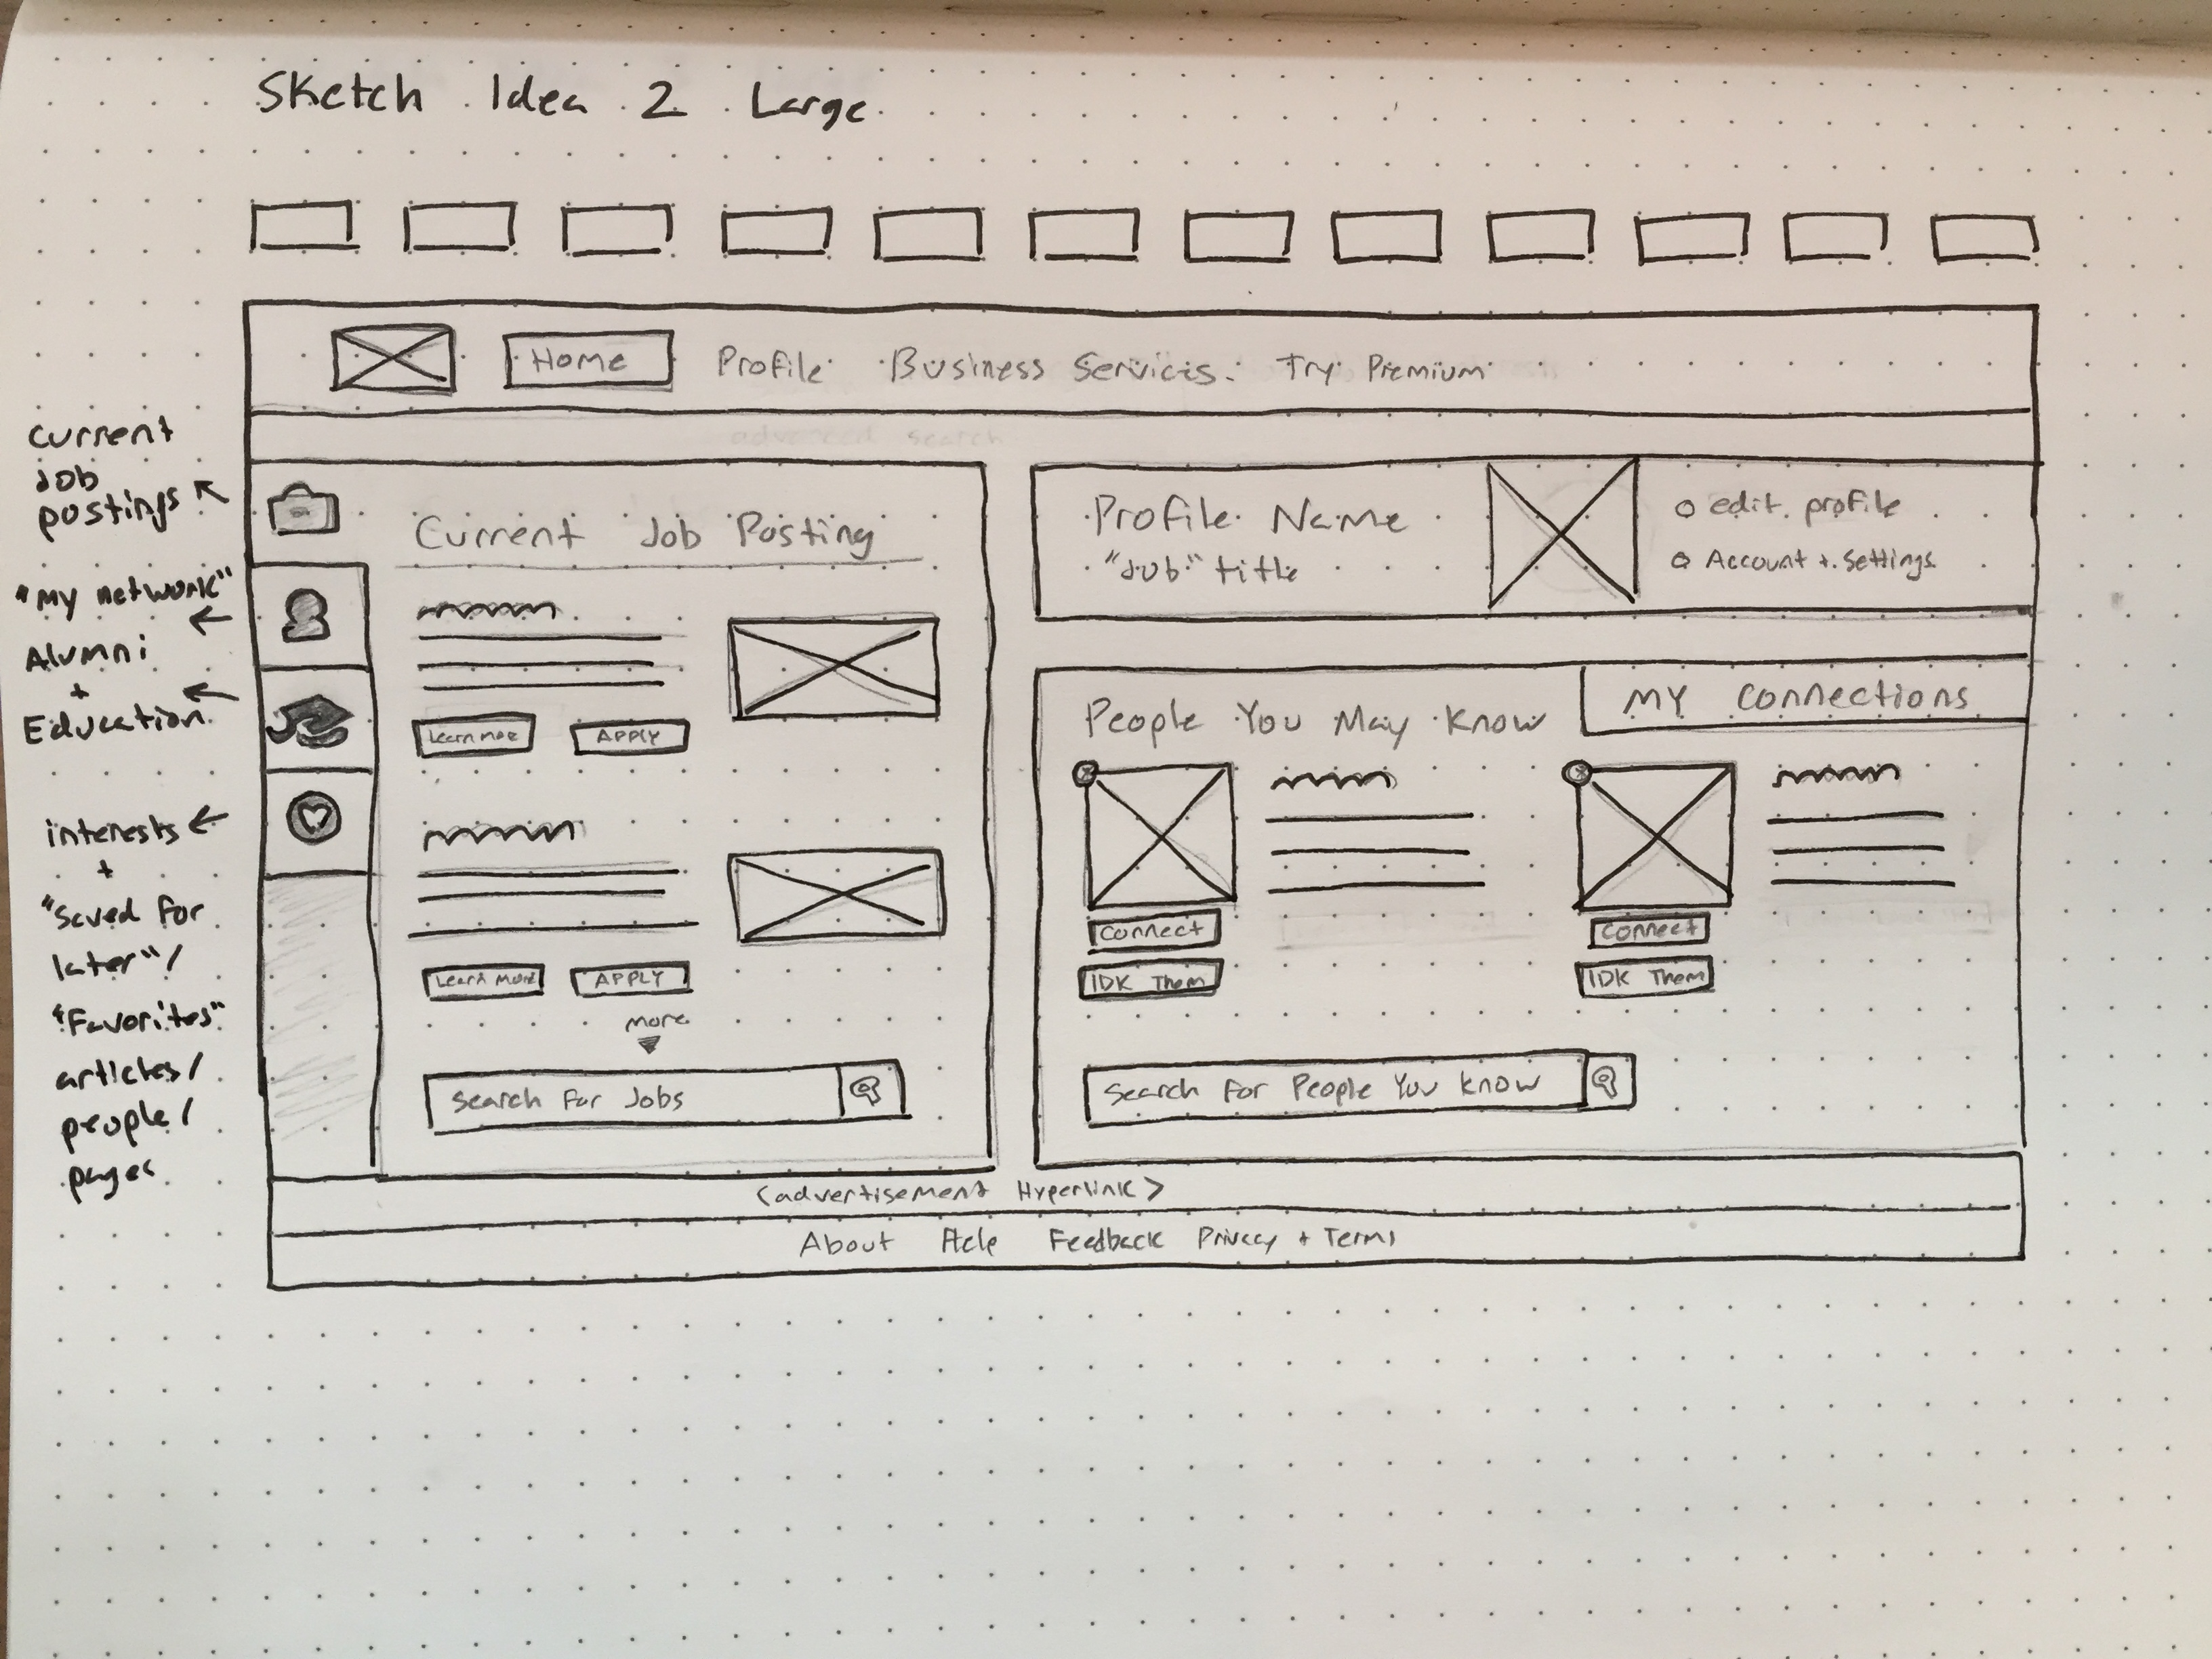 Sketch Idea 2 Large
Home Profile Business Services Try Premium
advanced search
current
Job
postings
"My network"
Alumni
+
Education
interests
+
"saved for
later"/
"Favorites"
articles/
people/
pages
Current Job Posting
Learn more APPLY
Learn more APPLY
more
Search For Jobs
Profile Name
"Job" title
edit profile
Account + Settings
People You May Know
MY Connections
Connect
IDK Them
Connect
IDK Them
Search For People You Know
<advertisement Hyperlink>
About Help Feedback Privacy + Terms